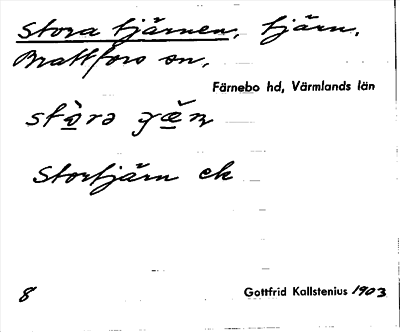 Stora tjärnen, tjärn,
Brattfors sn,
Färnebo hd, Värmlands län
Stortjärn ek
8
Gottfrid Kallstenius 1903